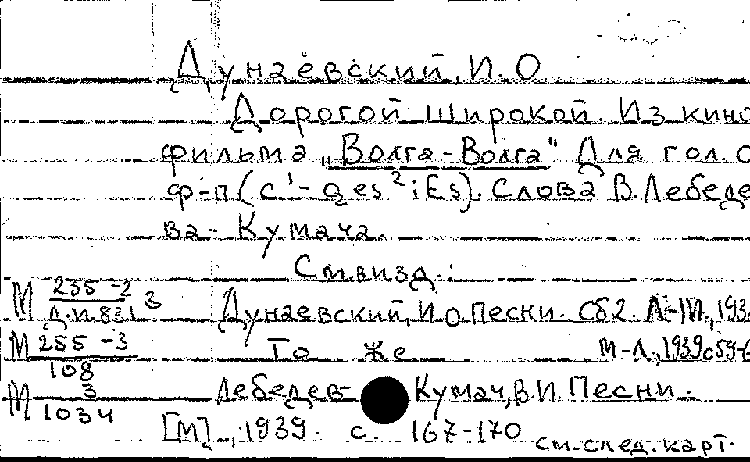 Дунаевский, И.О
Дорогой широкой. Из кино
фильма „Волга-Волга" Для гол. с
ф-п (c¹-qes²; Es). Слова В. Лебеде
ва-Кумача.
См. в изд.:
М 235-2 / Д.И.831 3 Дунаевский, И О. Песни. Сб 2. Л-М., 193
М 255-3 / 108 То же М-Л., 1939 с 59-6
М 3 / 1034 Лебедев-Кумач, В.И Песни.
[М]., 1939. с. 167-170
см. след. карт.